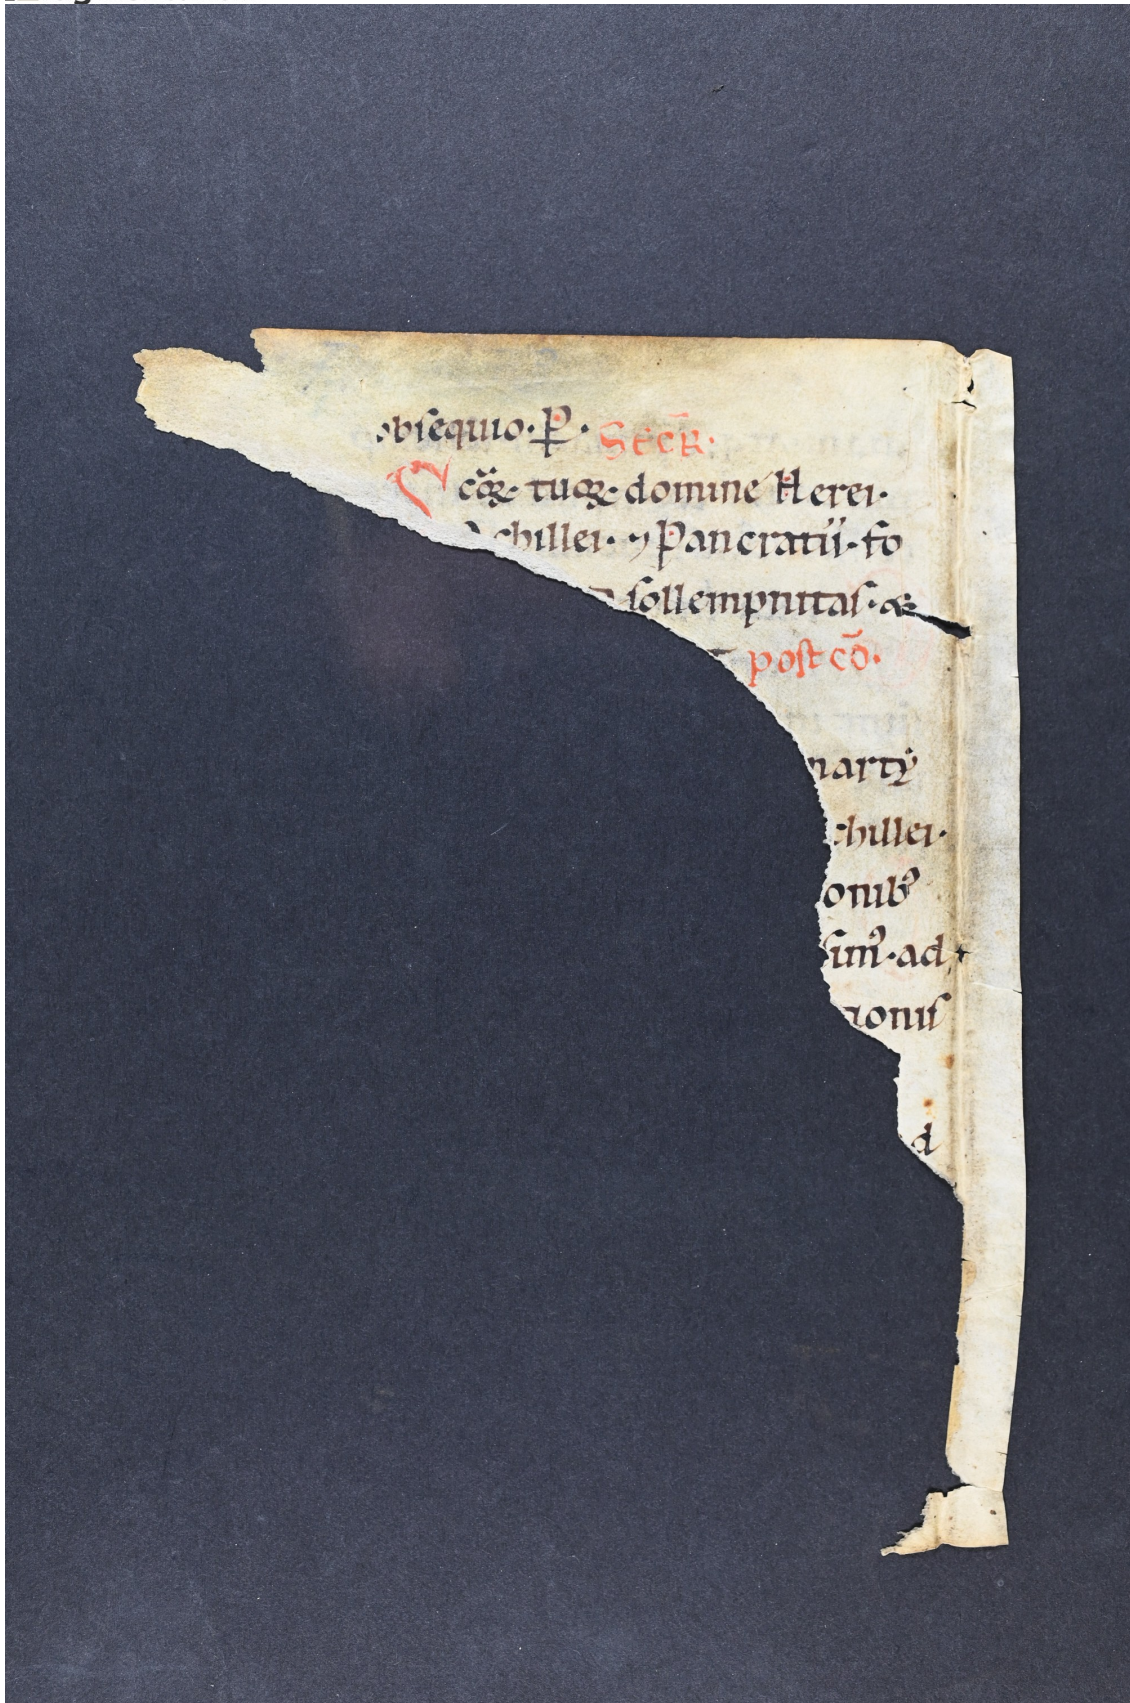 obsequio. P.  SECR.
S cōꝝ tuoꝝ domine Herei.
Achillei. ⁊ Pancratii. fo
sollempnitas. 
post cō.
marty
chillei.
onibꝰ
simꝰ. ad
tionis
d